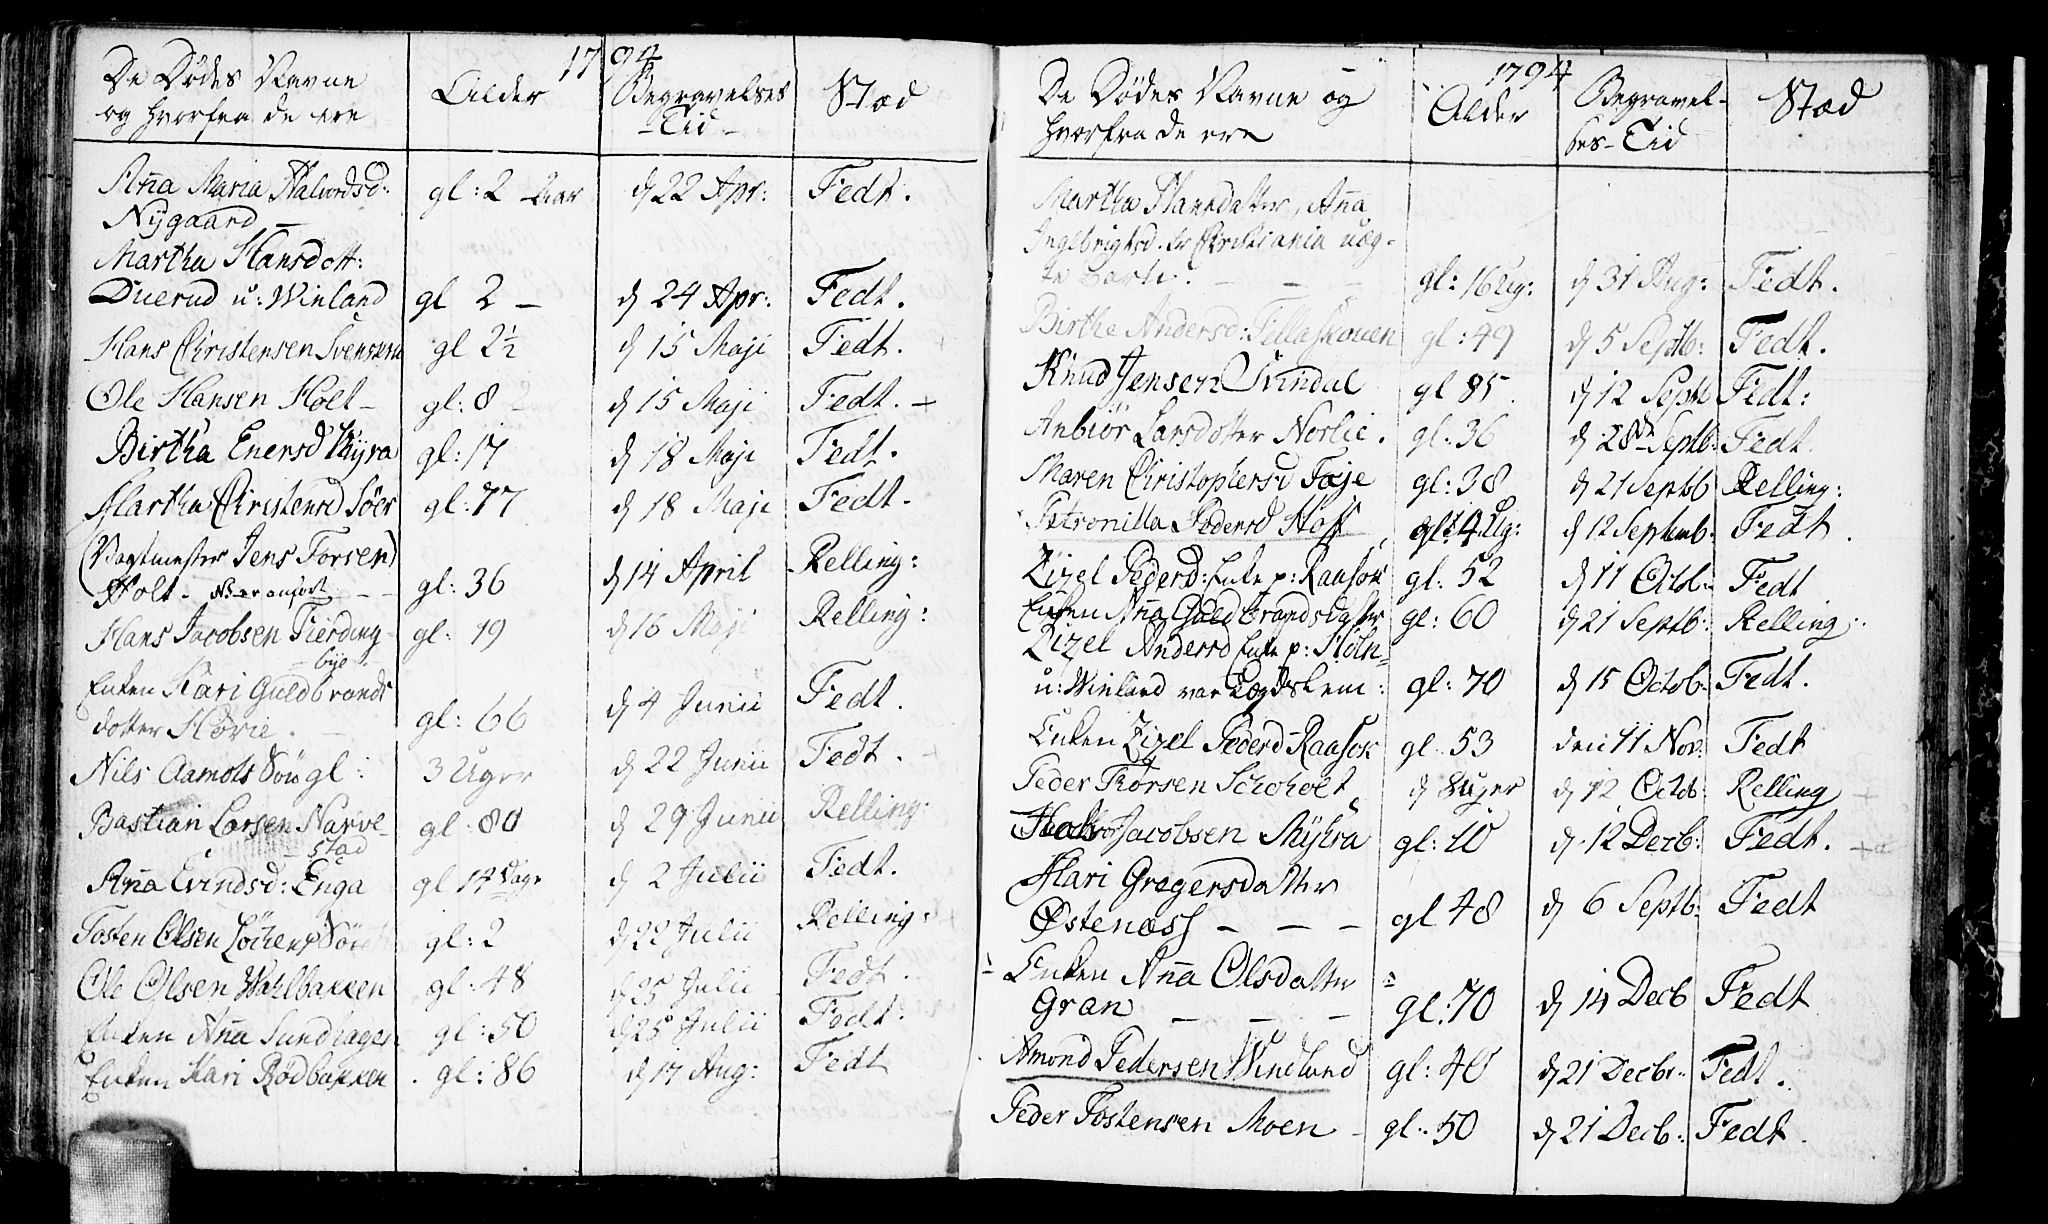 1794
De Dødes Navne
og hvorfra de ere
Alder
Begravelses
-Tid-
Stæd
Aña Maria Halvordsd:
Nygaard
gl: 2 Aar
d 22 Apr:
Fedt.
Martha Hansdott:
Duerud u: Winland
gl 2 -
d 24 Apr:
Fedt.
Hans Christensen Svenseru
gl 2½
d 15 Maji
Fedt.
Ole Hansen Holt
gl: 8
d 15 Maji
Fedt.
Birtha Enersd Myra
gl: 17
d 18 Maji
Fedt.
Martha Christensd Söer
gl: 77
d 18 Maji
Fedt.
(Vagtmester Jens Torsen)
Holt.
gl: 36
d 14 April
Relling:
Hans Jacobsen Fierding
bye.
gl: 19
d 16 Maji
Relling:
Enken Kari Guldbrands
dotter Hovie.
gl: 66
d 4 Junii
Fedt.
Nils Aamots Sön gl:
3 Uger
d 22 Junii
Fedt.
Bastian Larsen Narve-
stad
gl: 80
d 29 Junii
Relling:
Aña Evindsd: Enga
gl 14 Dage
d 2 Julii
Fedt.
Tosten Olsen Sön
gl: 2
d 22 Julii
Relling:
Ole Olsen Wahlbakken
gl: 48
d 25 Julii
Fedt.
Enken Aña Sundhagen
gl: 50
d 25 Julii
Fedt.
Enken Kari Rödbakken
gl: 86
d 17 Aug:
Fedt
1794
De Dødes Navne og
hvorfra de ere
Alder
Begravel-
ses-Tid
Stæd
Martha Hansdatter, Aña
Ingebrigtsd. fr Christiania uæg-
te Barn.
gl: 16 Ug:
d 31 Aug:
Fedt.
Birthe Andersd: Fillaskouen
gl: 49
d 5 Septb:
Fedt.
Knud Jensen Svindal
gl 85.
d 12 Septb
Fedt:
Anbiör Larsdotter Norlie.
gl: 36
d 28de Septb:
Fedt.
Maren Christophersd Foje
gl: 38
d 21 Septb
Relling:
Petronilla Pedersd Hoff
gl: 4 Ug:
d 12 Septemb:
Fedt.
Zizel Pedersd: Enke p: Raasok
gl: 52
d 11 Octb:
Fedt
Enken Aña Guldbrandsdatter
gl: 60
d 21 Septb:
Relling:
Zizel Andersd Enke p: Holn
u: Winland var Lægdslem:
gl: 70
d 15 Octob:
Fedt.
Enken Zizel Pedersd Raasok
gl: 53
den 11 Nov:
Fedt
Peder Thorsen
8 Uger
d 12 Octb:
Relling
Halvor Jacobsen Myhra
gl: 10
d 12 Decb:
Fedt.
Mari Gregersdatter
Østenæss - - -
gl 48
d 6 Septb:
Fedt
Enken Aña Olsdatter
Gran - - -
gl: 70
d 14 Decb
Fedt
Amond Pedersen Windland
gl: 40
d 21 Decbr:
Fedt.
Peder Tostensen Moen
gl: 50
d 21 Decb:
Fedt.